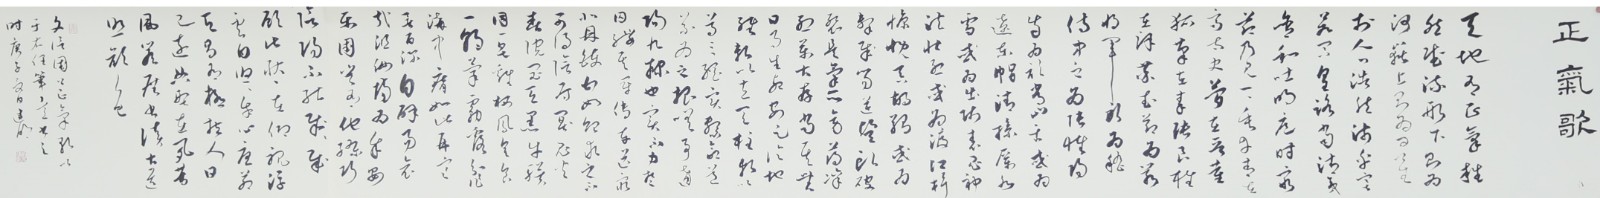 正氣歌
天地有正氣雜
然賦流形下則為
河嶽上則為日星
於人曰浩然沛乎塞
蒼冥皇路當清夷
含和吐明庭時窮
節乃見一一垂丹青在
齊太史簡在晉董
狐筆在秦張良椎
在漢蘇武節為嚴
將軍頭為嵇
侍中血為張睢陽
齒為顏常山舌或為
遼東帽清操厲冰
雪或為出師表鬼神
泣壯烈或為渡江楫
慷慨吞胡羯或為
擊賊笏逆豎頭破
裂是氣所旁薄凜
烈萬古存當其貫
日月生死安足論地
維賴以立天柱賴以
尊三綱實繫命道
義為之根嗟予遘
陽九隸也實不力楚
囚纓其冠傳車送窮
北鼎鑊甘如飴求之不
可得陰房闃鬼火
春院閟天黑牛驥
同一皂雞棲鳳凰食
一朝蒙霧露分作
溝中瘠如此再寒
暑百沴自辟易哀
哉沮洳場為我安
樂國豈有他繆巧
陰陽不能賊
顧此耿耿在仰視浮
雲白悠悠我心悲蒼
天曷有極哲人日
已遠典刑在夙昔
風簷展書讀古道
照顏色
文信國公正氣歌以
于右任筆意書之
時庚子夏日